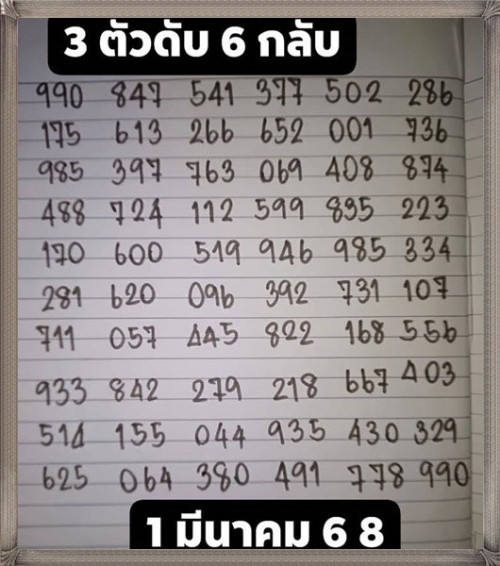 3 ตัวดับ 6 กลับ
990 847 541 377 502 286
175 613 266 652 001 736
985 397 763 069 408 874
488 724 112 599 835 223
170 600 519 946 985 334
281 620 096 392 731 107
711 057 445 822 168 556
933 842 279 218 667 403
514 155 044 935 430 329
625 064 380 491 778 990
1 มีนาคม 6 8